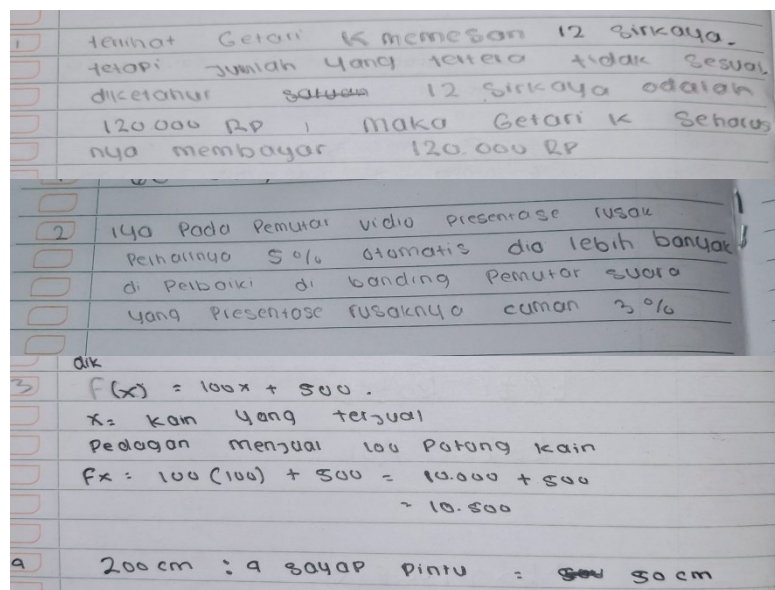 1 terlihat Getari K memesan 12 sirkaya.
tetapi jumlah yang tertera tidak sesuai
diketahui 12 sirkaya adalah
120.000 RP, maka Getari K seharus
nya membayar 120.000 RP
2 iya Pada Pemutar vidio presentase rusak
Perharinya 5% otomatis dia lebih banyak
di Perbaiki di banding Pemutar suara
yang Presentase rusaknya cuman 3%
dik
3 F(x) = 100x + 500.
x = kain yang terjual
Pedagan menjual 100 Potong kain
Fx = 100 (100) + 500 = 10.000 + 500
= 10.500
a 200 cm : a sayap Pintu = 50 cm